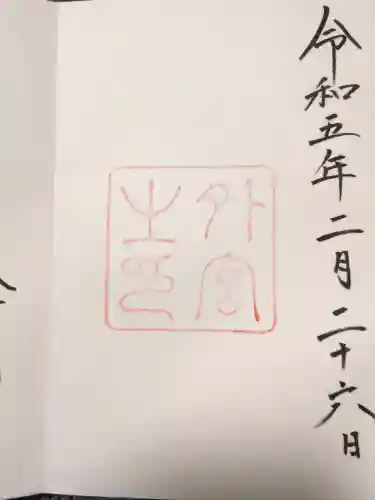 令和五年二月二十六日
外宮之印